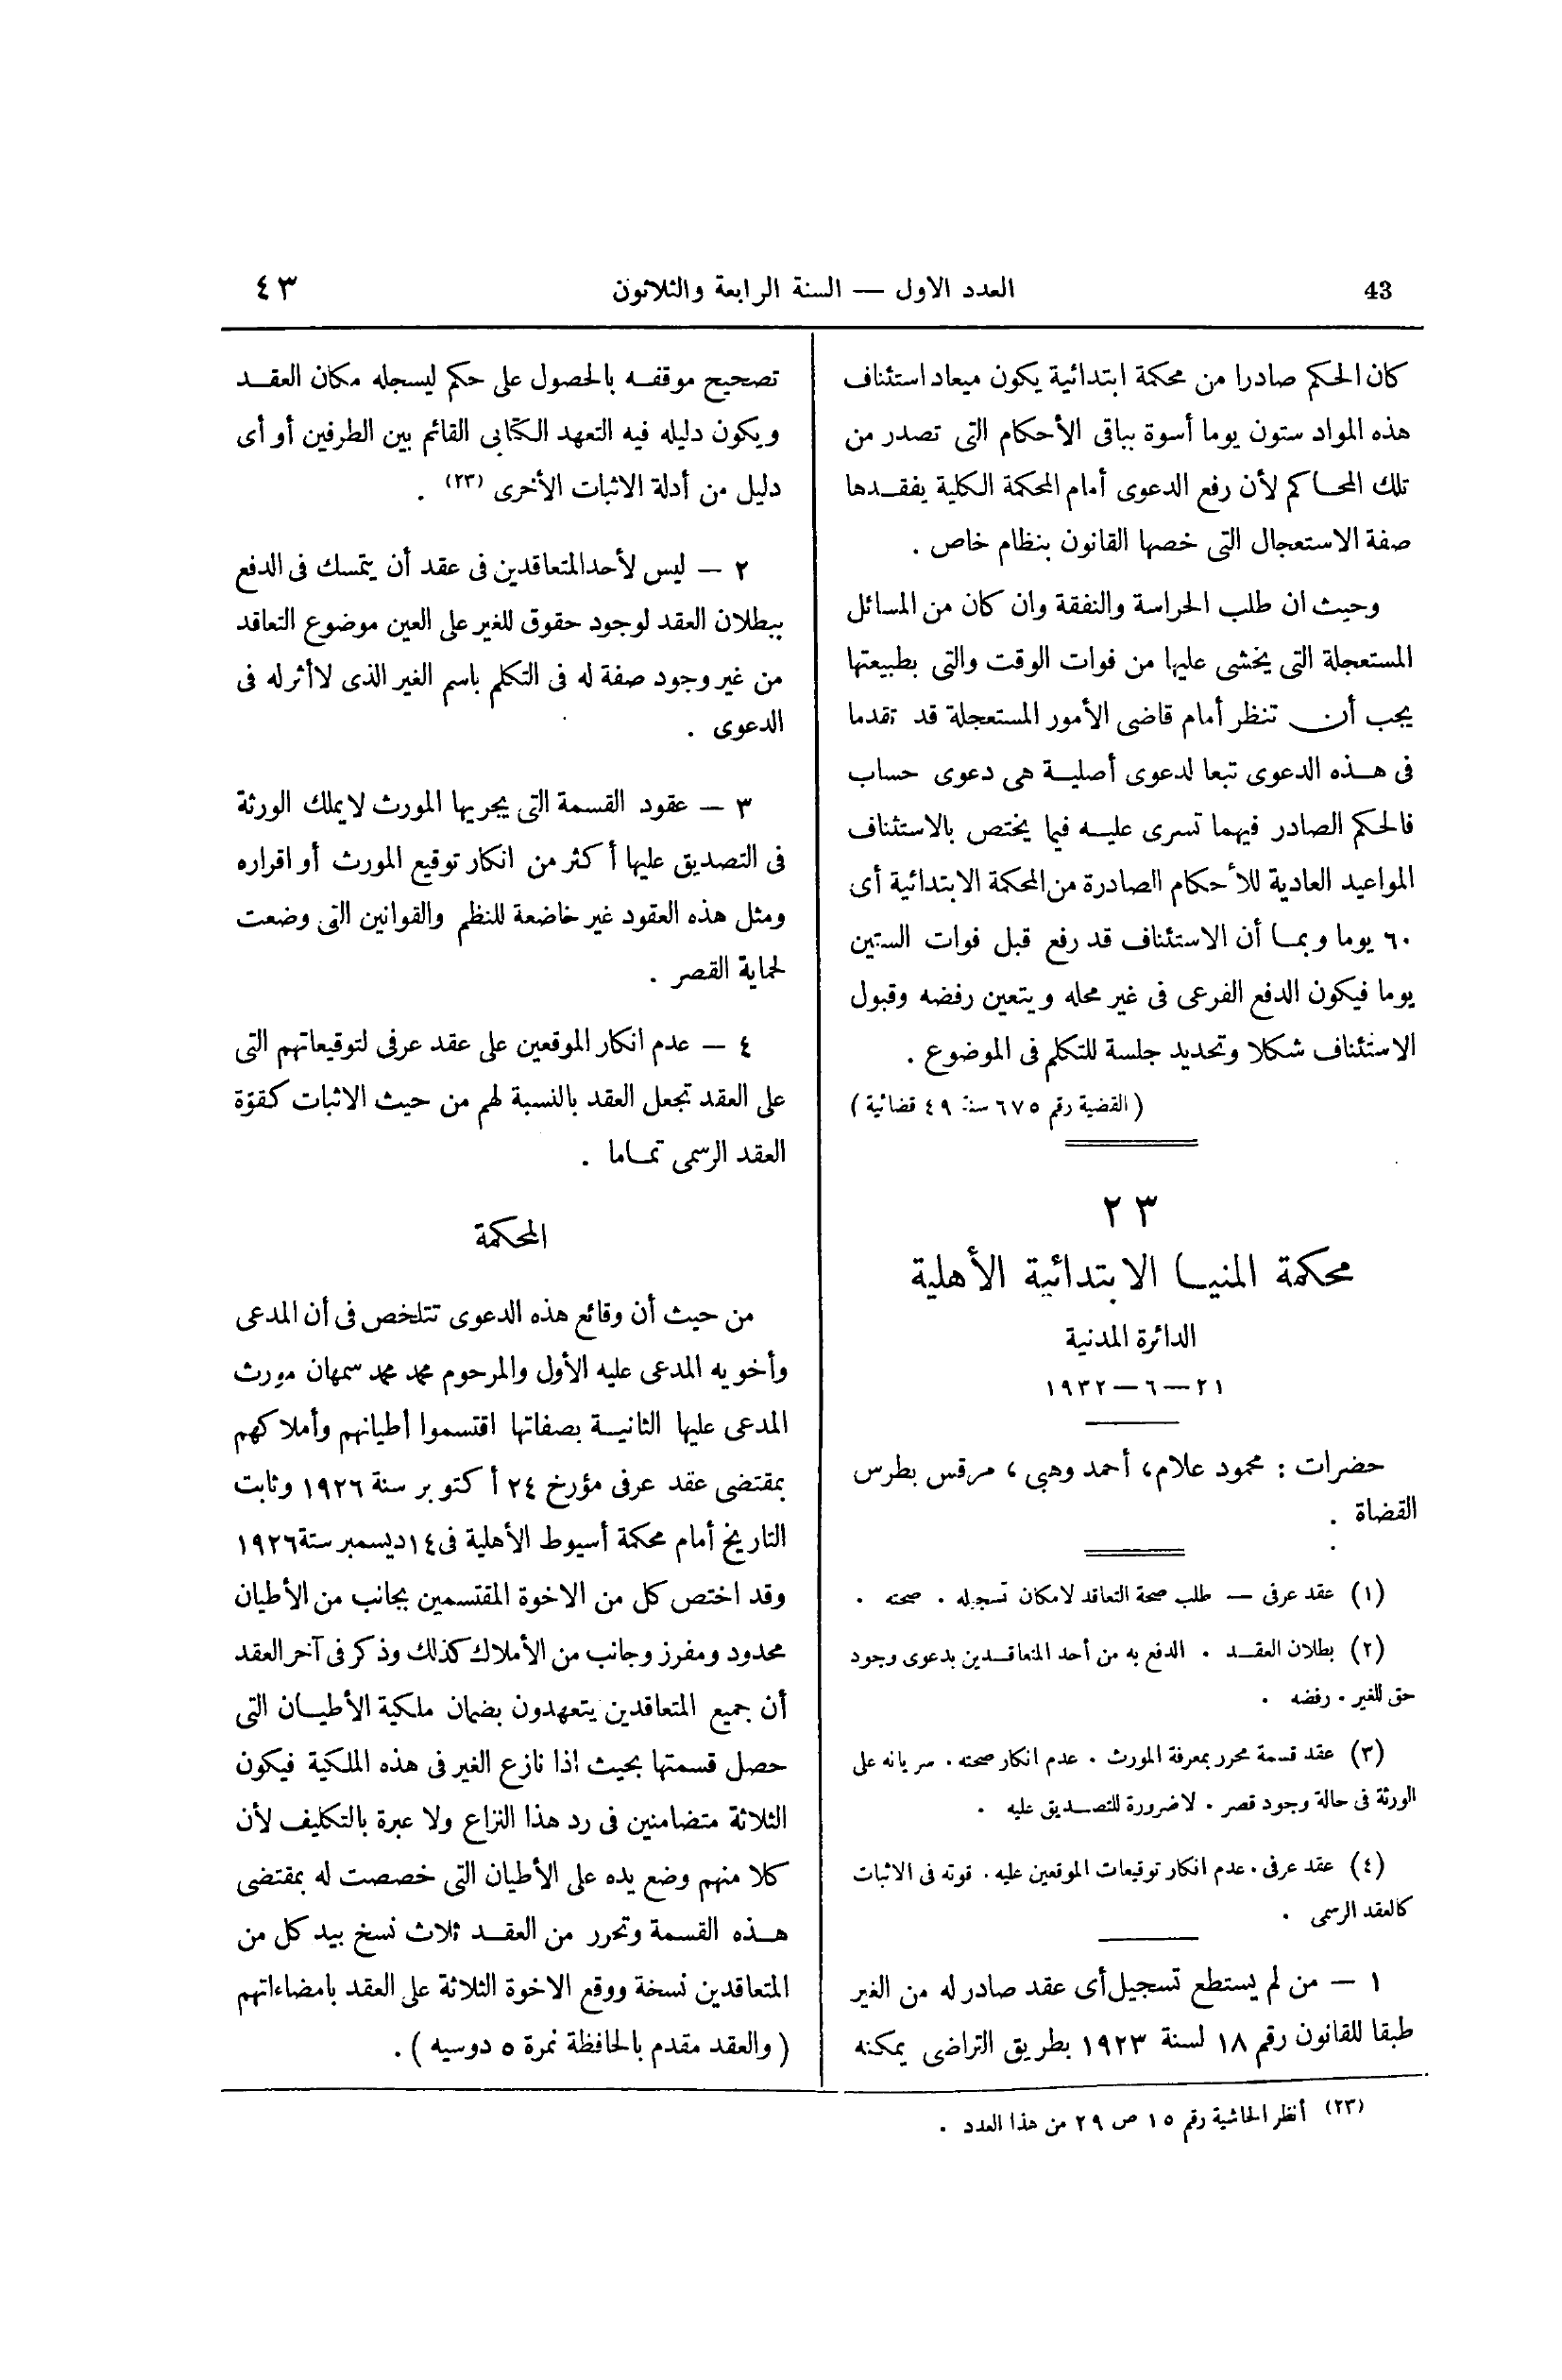 43
العدد الاول — السنة الرابعة والثلاثون
٤٣
كان الحكم صادرا من محكمة ابتدائية يكون ميعاد استئناف
هذه المواد ستون يوما أسوة بباقى الأحكام التى تصدر من
تلك المحاكم لأن رفع الدعوى أمام المحكمة الكلية يفقدها
صفة الاستعجال التى خصها القانون بنظام خاص .
وحيث ان طلب الحراسة والنفقة وان كان من المسائل
المستعجلة التى يخشى عليها من فوات الوقت والتى بطبيعتها
يجب أن تنظر أمام قاضى الأمور المستعجلة قد تقدما
فى هذه الدعوى تبعا لدعوى أصلية هى دعوى حساب
فالحكم الصادر فيهما تسرى عليه فيما يختص بالاستئناف
المواعيد العادية للأحكام الصادرة من المحكمة الابتدائية أى
٦٠ يوما وبما أن الاستئناف قد رفع قبل فوات الستين
يوما فيكون الدفع الفرعى فى غير محله ويتعين رفضه وقبول
الاستئناف شكلا وتحديد جلسة للتكلم فى الموضوع .
( القضية رقم ٦٧٥ سنة ٤٩ قضائية )
٢٣
محكمة المنيا الابتدائية الأهلية
الدائرة المدنية
٢١ — ٦ — ١٩٣٢
حضرات : محمود علام، أحمد وهبى ، مرقس بطرس
القضاة .
(١) عقد عرفى — طلب صحة التعاقد لامكان تسجيله . صحته .
(٢) بطلان العقد . الدفع به من أحد المتعاقدين بدعوى وجود
حق للغير . رفضه .
(٣) عقد قسمة محرر بمعرفة المورث . عدم انكار صحته . سريانه على
الورثة فى حالة وجود قصر . لا ضرورة للتصديق عليه .
(٤) عقد عرفى . عدم انكار توقيعات الموقعين عليه . قوته فى الاثبات
كالعقد الرسمى .
١ — من لم يستطع تسجيل أى عقد صادر له من الغير
طبقا للقانون رقم ١٨ لسنة ١٩٢٣ بطريق التراضى يمكنه
تصحيح موقفه بالحصول على حكم ليسجله مكان العقد
ويكون دليله فيه التعهد الكتابى القائم بين الطرفين أو أى
دليل من أدلة الاثبات الأخرى (٢٣) .
٢ — ليس لأحد المتعاقدين فى عقد أن يتمسك فى الدفع
ببطلان العقد لوجود حقوق للغير على العين موضوع التعاقد
من غير وجود صفة له فى التكلم باسم الغير الذى لا أثر له فى
الدعوى .
٣ — عقود القسمة التى يجريها المورث لا يملك الورثة
فى التصديق عليها أكثر من انكار توقيع المورث أو اقراره
ومثل هذه العقود غير خاضعة للنظم والقوانين التى وضعت
لحماية القصر .
٤ — عدم انكار الموقعين على عقد عرفى لتوقيعاتهم التى
على العقد تجعل العقد بالنسبة لهم من حيث الاثبات كقوّة
العقد الرسمى تماما .
المحكمة
من حيث أن وقائع هذه الدعوى تتلخص فى أن المدعى
وأخويه المدعى عليه الأول والمرحوم محمد محمد سمهان مورث
المدعى عليها الثانية بصفاتها اقتسموا أطيانهم وأملاكهم
بمقتضى عقد عرفى مؤرخ ٢٤ أكتوبر سنة ١٩٢٦ وثابت
التاريخ أمام محكمة أسيوط الأهلية فى ١٤ ديسمبر سنة ١٩٢٦
وقد اختص كل من الاخوة المقتسمين بجانب من الأطيان
محدود ومفرز وجانب من الأملاك كذلك وذكر فى آخر العقد
أن جميع المتعاقدين يتعهدون بضمان ملكية الأطيان التى
حصل قسمتها بحيث اذا نازع الغير فى هذه الملكية فيكون
الثلاثة متضامنين فى رد هذا النزاع ولا عبرة بالتكليف لأن
كلا منهم وضع يده على الأطيان التى خصصت له بمقتضى
هذه القسمة وتحرر من العقد ثلاث نسخ بيد كل من
المتعاقدين نسخة ووقع الاخوة الثلاثة على العقد بامضاءاتهم
( والعقد مقدم بالحافظة نمرة ٥ دوسيه ) .
(٢٣) أنظر الحاشية رقم ١٥ ص ٢٩ من هذا العدد .